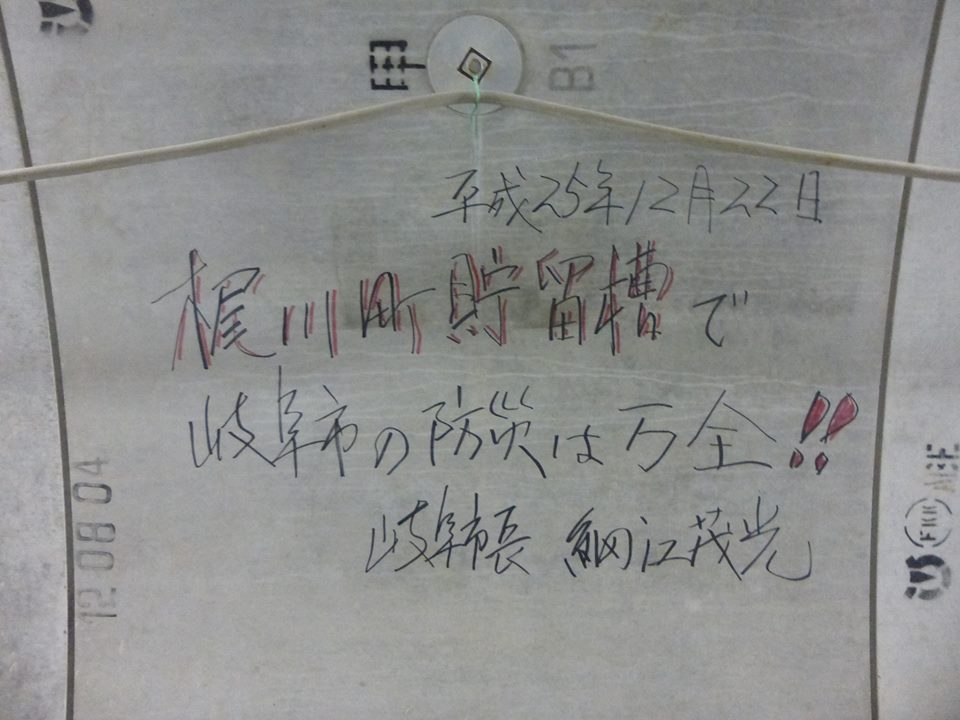 甲 B1
平成25年12月22日
梶川町貯留槽で
岐阜市の防災は万全!!
岐阜市長 細江茂光
12 08 04